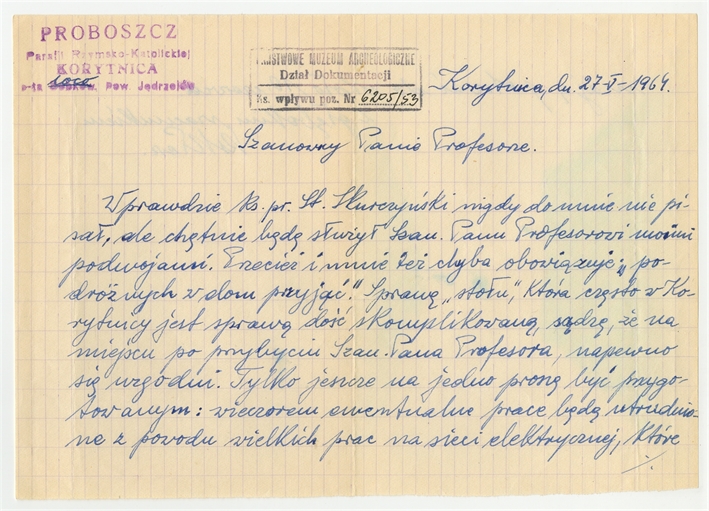 PROBOSZCZ
Parafii Rzymsko-Katolickiej
KORYTNICA
p-ta Sobków, Pow. Jędrzejów
PAŃSTWOWE MUZEUM ARCHEOLOGICZNE
Dział Dokumentacji
Ks. wpływu poz. Nr 6205/53
Korytnica, dn. 27-V-1964.
Szanowny Panie Profesorze.
Wprawdzie ks. pr. St. Skurczyński nigdy do mnie nie pi
sał, ale chętnie będę służył Szan. Panu Profesorowi moimi
podwojami. Przecież i mnie też chyba obowiązuje: „po-
dróżnych w dom przyjąć." Sprawę „stołu", która często w Ko-
rytnicy jest sprawą dość skomplikowaną, sądzę, że na
miejscu po przybyciu Szan. Pana Profesora, napewno
się uzgodni. Tylko jeszcze na jedno proszę być przygo-
towanym: wieczorem ewentualne prace będą utrudnio-
ne z powodu wielkich prac na sieci elektrycznej, które
./.